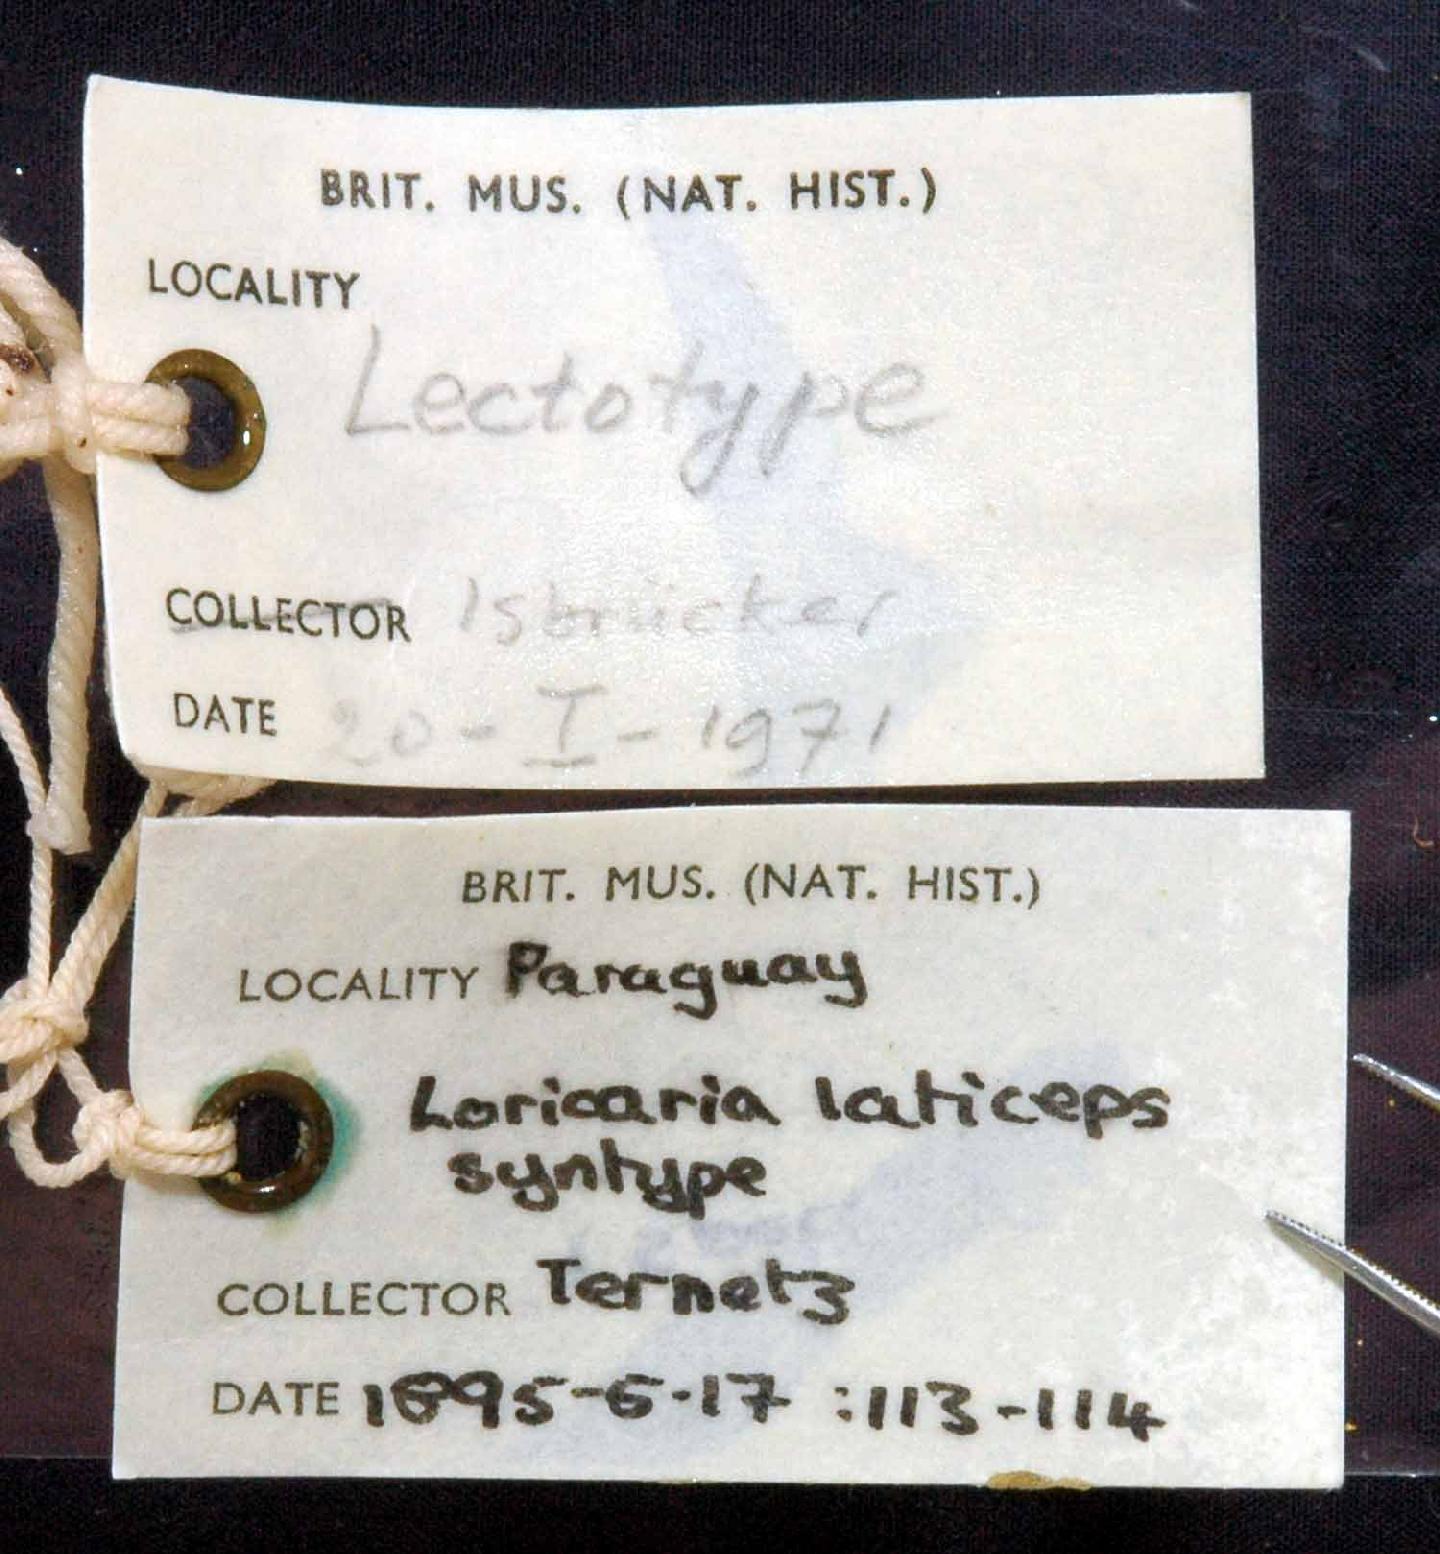 BRIT. MUS. (NAT. HIST.)
LOCALITY
Lectotype
COLLECTOR Isbrücker
DATE 20-I-1971
BRIT. MUS. (NAT. HIST.)
LOCALITY Paraguay
Loricaria laticeps
syntype
COLLECTOR Ternetz
DATE 1895-5-17 :113-114